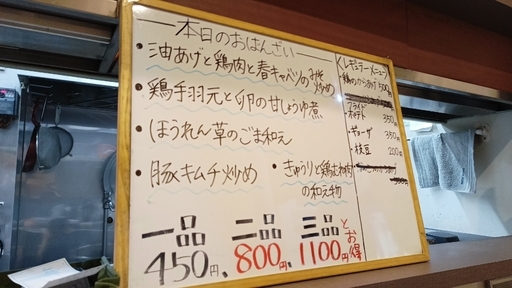 本日のおばんざい
・油あげと鶏肉と春キャベツのみそ炒め
・鶏手羽元と卵の甘しょうゆ煮
・ほうれん草のごま和え
・豚キムチ炒め
・きゅうりと鶏むね肉
の和え物
一品 二品 三品 とお得
450円、800円、1100円
レギュラーメニュー
・鶏のからあげ 500円
・フライド
ポテト 350円
・ギョーザ 350円
・枝豆 200円